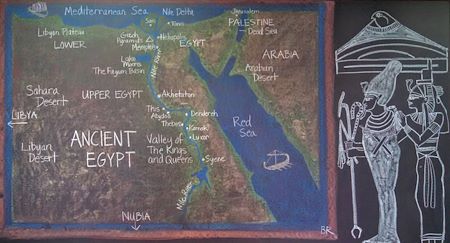 Mediterranean Sea
Nile Delta
Jerusalem
Sais
Tanis
PALESTINE
Dead Sea
Libyan Plateau
LOWER
EGYPT
Giza
Pyramids
Heliopolis
Memphis
ARABIA
Arabian
Desert
Lake
Moeris
The Fayum Basin
Nile River
Sahara
Desert
UPPER EGYPT
Akhetaton
This
Abydos
Dendereh
Thebes
Karnak
Luxor
Red
Sea
LIBYA
Libyan
Desert
ANCIENT
EGYPT
Valley of
The Kings
and Queens
Syene
Nile River
NUBIA
BR